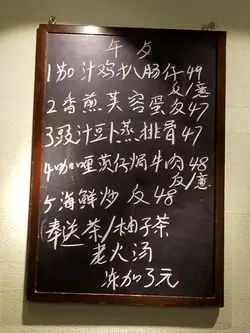 午夕
1茄汁鸡扒肠仔49
反/意
2香煎芙容蛋反47
3豉汁豆卜蒸排骨47
4咖喱茨仔焗牛肉48
反/意
5海鲜炒反48
(奉送茶/柚子茶
老火汤
冻加3元